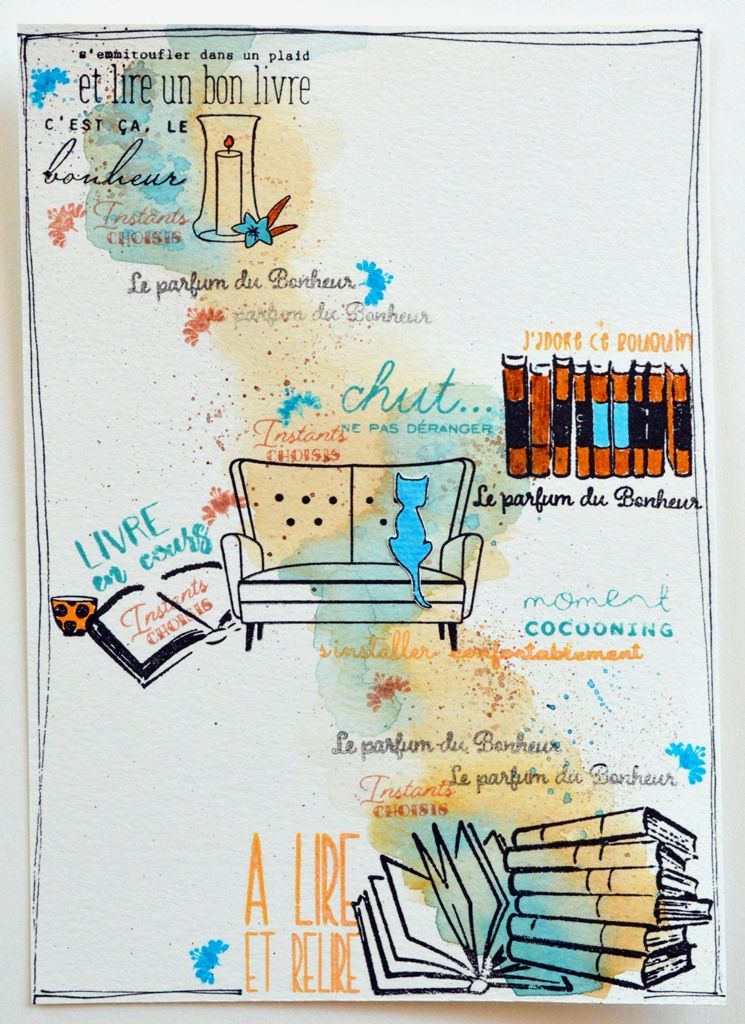 s'emmitoufler dans un plaid
et lire un bon livre
C'EST ÇA, LE
bonheur
Instants
CHOISIS
Le parfum du Bonheur
Le parfum du Bonheur
J'ADORE CE BOUQUIN
chut...
NE PAS DÉRANGER
Instants
CHOISIS
Le parfum du Bonheur
LIVRE
en cours
Instants
CHOISIS
moment
COCOONING
s'installer confortablement
Le parfum du Bonheur
Le parfum du Bonheur
Instants
CHOISIS
A LIRE
ET RELIRE